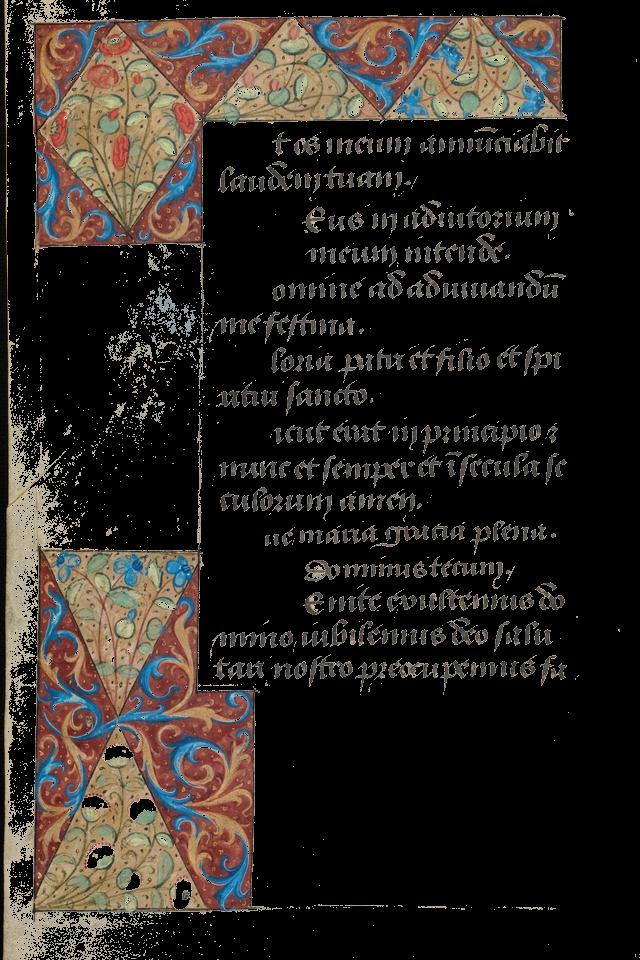 t os meum annūciabit
laudem tuam.
Eus in adiutorium
meum intende.
omine ad adiuuandū
me festina.
loria patri et filio et spi
ritui sancto.
icut erat in principio ⁊
nunc et semper et ī secula se
culorum amen.
ue maria gracia plena.
Dominus tecum.
Enite exultemus do
mino, iubilemus deo salu
tari nostro preocupemus fa